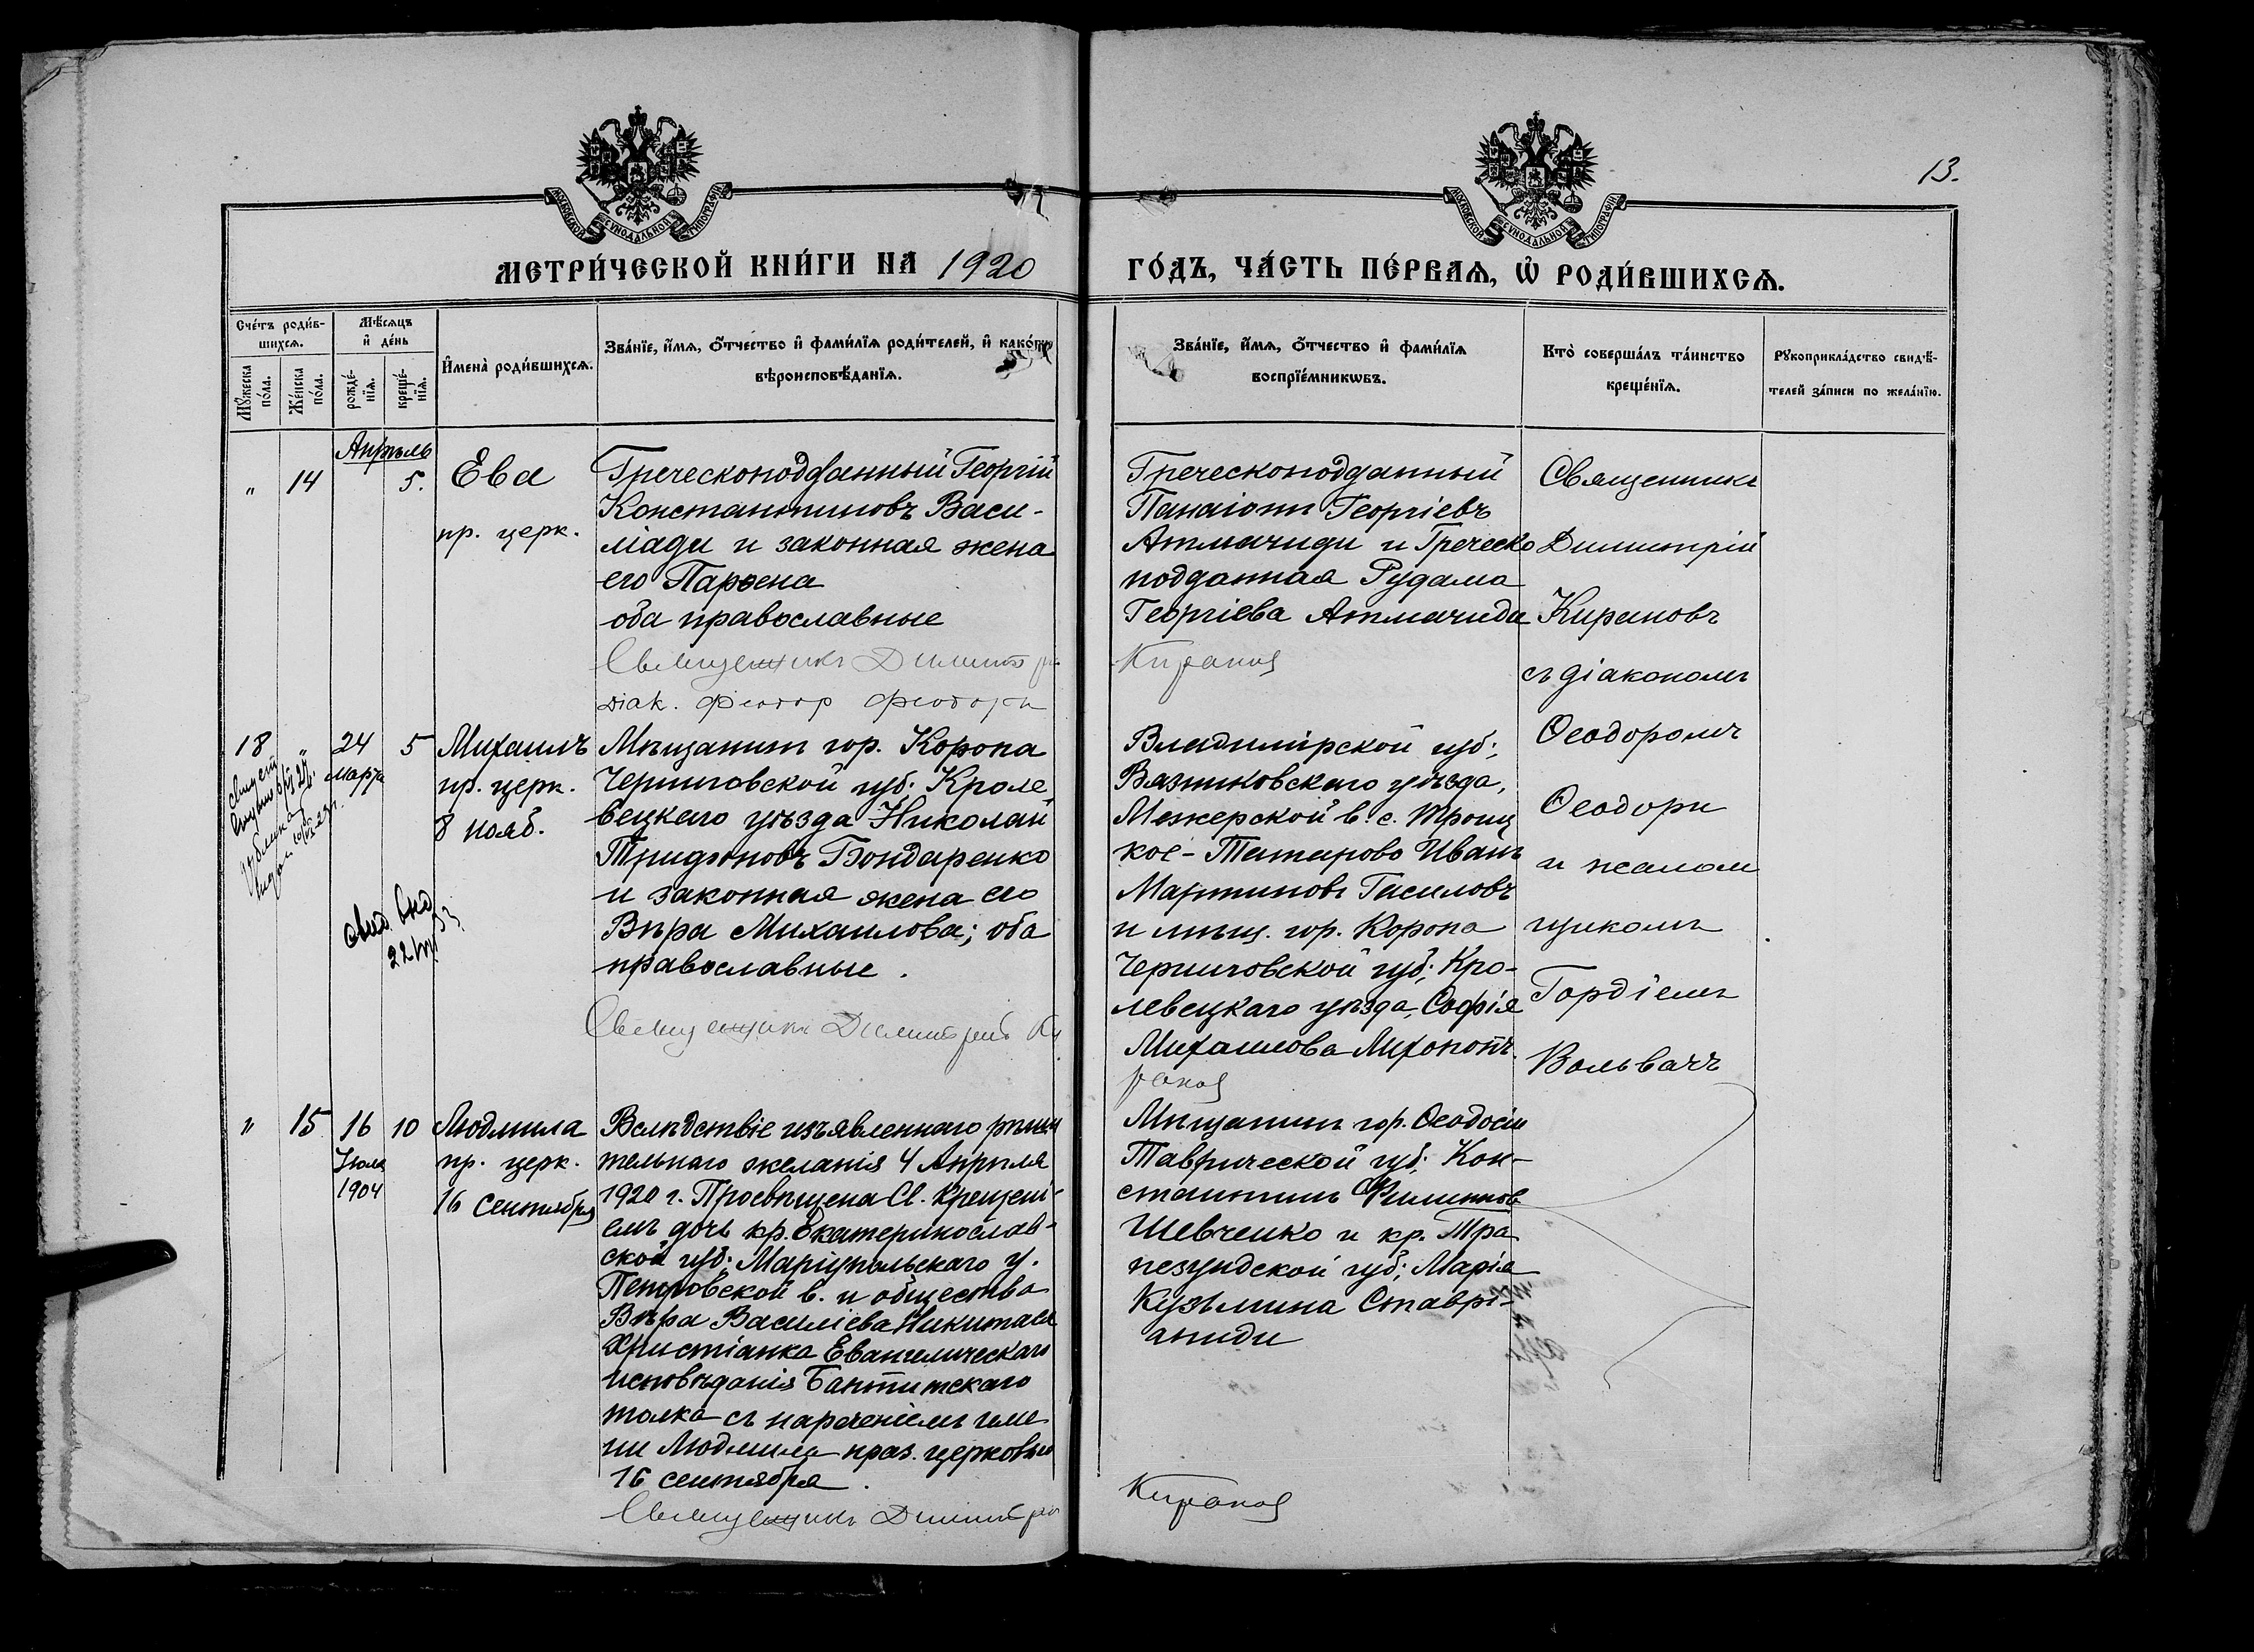 13.
МОСКОВСКОЙ СѴНОДАЛЬНОЙ ТИПОГРАФІИ
МОСКОВСКОЙ СѴНОДАЛЬНОЙ ТИПОГРАФІИ
МЕТРИ́ЧЕСКОЙ КНИ́ГИ НА 1920
ГО́ДЪ, ЧА́СТЬ ПЕ́РВАЯ, Ѿ РОДИ́ВШИХСЯ.
Сче́тъ роди́в-
шихся.
Мꙋ́жеска
по́ла.
Же́нска
по́ла.
Мѣ́сяцъ
и҆ де́нь
рожде́-
нїя.
креще́-
нїя.
И҆мена̀ роди́вшихся.
Зва́нїе, и҆́мя, ѻ҆́тчество и҆ фами́лїя роди́телей, и҆ како́гѡ
вѣроисповѣ́данїя.
Зва́нїе, и҆́мя, ѻ҆́тчество и҆ фами́лїя
воспрїе́мникѡвъ.
Кто̀ соверша́лъ та́инство
креще́нїя.
Рꙋкоприкла́дство свидѣ́-
телей за́писи по жела́нїю.
Апрѣль
" 14 5.
Ева
пр. церк.
Греческоподданный Георгій
Константиновъ Васи-
ліади и законная жена
его Парѳена
оба православные
Священникъ Димитрій
Діак. Феодор Феодори
Греческоподданный
Панаіотъ Георгіевъ
Атмачиди и Греческо
подданная Рудама
Георгіева Атмачиди
Киранов
Священникъ
Димитрій
Кирановъ
съ діакономъ
Ѳеодоромъ
Ѳеодори
и псалом
щикомъ
Гордіемъ
Вольвачъ
18 " 24 5
Марта
свид.
22
Михаилъ
пр. церк.
8 нояб.
Мѣщанинъ гор. Коропа
Черниговской губ; Кроле
вецкаго уѣзда Николай
Трифоновъ Бондаренко
и законная жена его
Вѣра Михаилова; оба
православные.
Священникъ Димитрій Ки
Владимірской губ;
Вязниковскаго уѣзда,
Межерской в. с. Троиц
кое-Татарово Иванъ
Мартиновъ Гасиловъ
и мѣщ. гор. Коропа
Черниговской губ; Кро-
левецкаго уѣзда, София
Михаилова Лихопотъ.
ранов
" 15 16 10
Іюля
1904
Людмила
пр. церк.
16 Сентября
Вслѣдствіе изъявленнаго рѣши
тельнаго желанія 4 Апрѣля
1920 г. Просвѣщена Св. Крещені-
емъ дочь кр. Екатеринослав-
ской губ. Маріупольскаго у.
Петровской в. и общества
Вѣра Василіева Никитаева
Христіанка Евангелическаго
исповѣданія Баптитскаго
толка съ нареченіемъ име
ни Людмила праз. церковью
16 сентября.
Священникъ Димитрій
Мѣщанинъ гор. Ѳеодосіи
Таврической губ. Кон-
стантинъ Филиппов
Шевченко и кр. Тра
пезундской губ; Марія
Кузьмина Ставрі-
аниди
Киранов